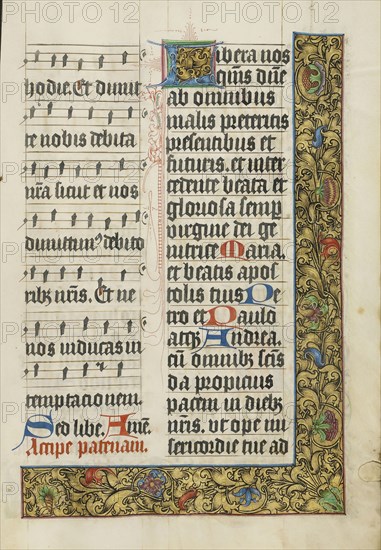 hodie. Et dimit
te nobis debita
nr̃a sicut et nos
dimittim⁹ debito
ribȝ nr̃is. Et ne
nos inducas in
temptacionem.
Sed libe. Amē.
Accipe patenam.
Libera nos
qs̃ums dñe
ab omnibus
malis preteritis
presentibus et
futuris. et inter
cedente beata et
gloriosa semp̱
virgine dei ge
nitrice Maria.
et beatis apos
tolis tuis Pe
tro et Paulo
atqȝ Andrea.
cū omnibȝ scīs
da propicius
pacem in diebȝ
nr̃is. ut ope mi
sericordie tue ad